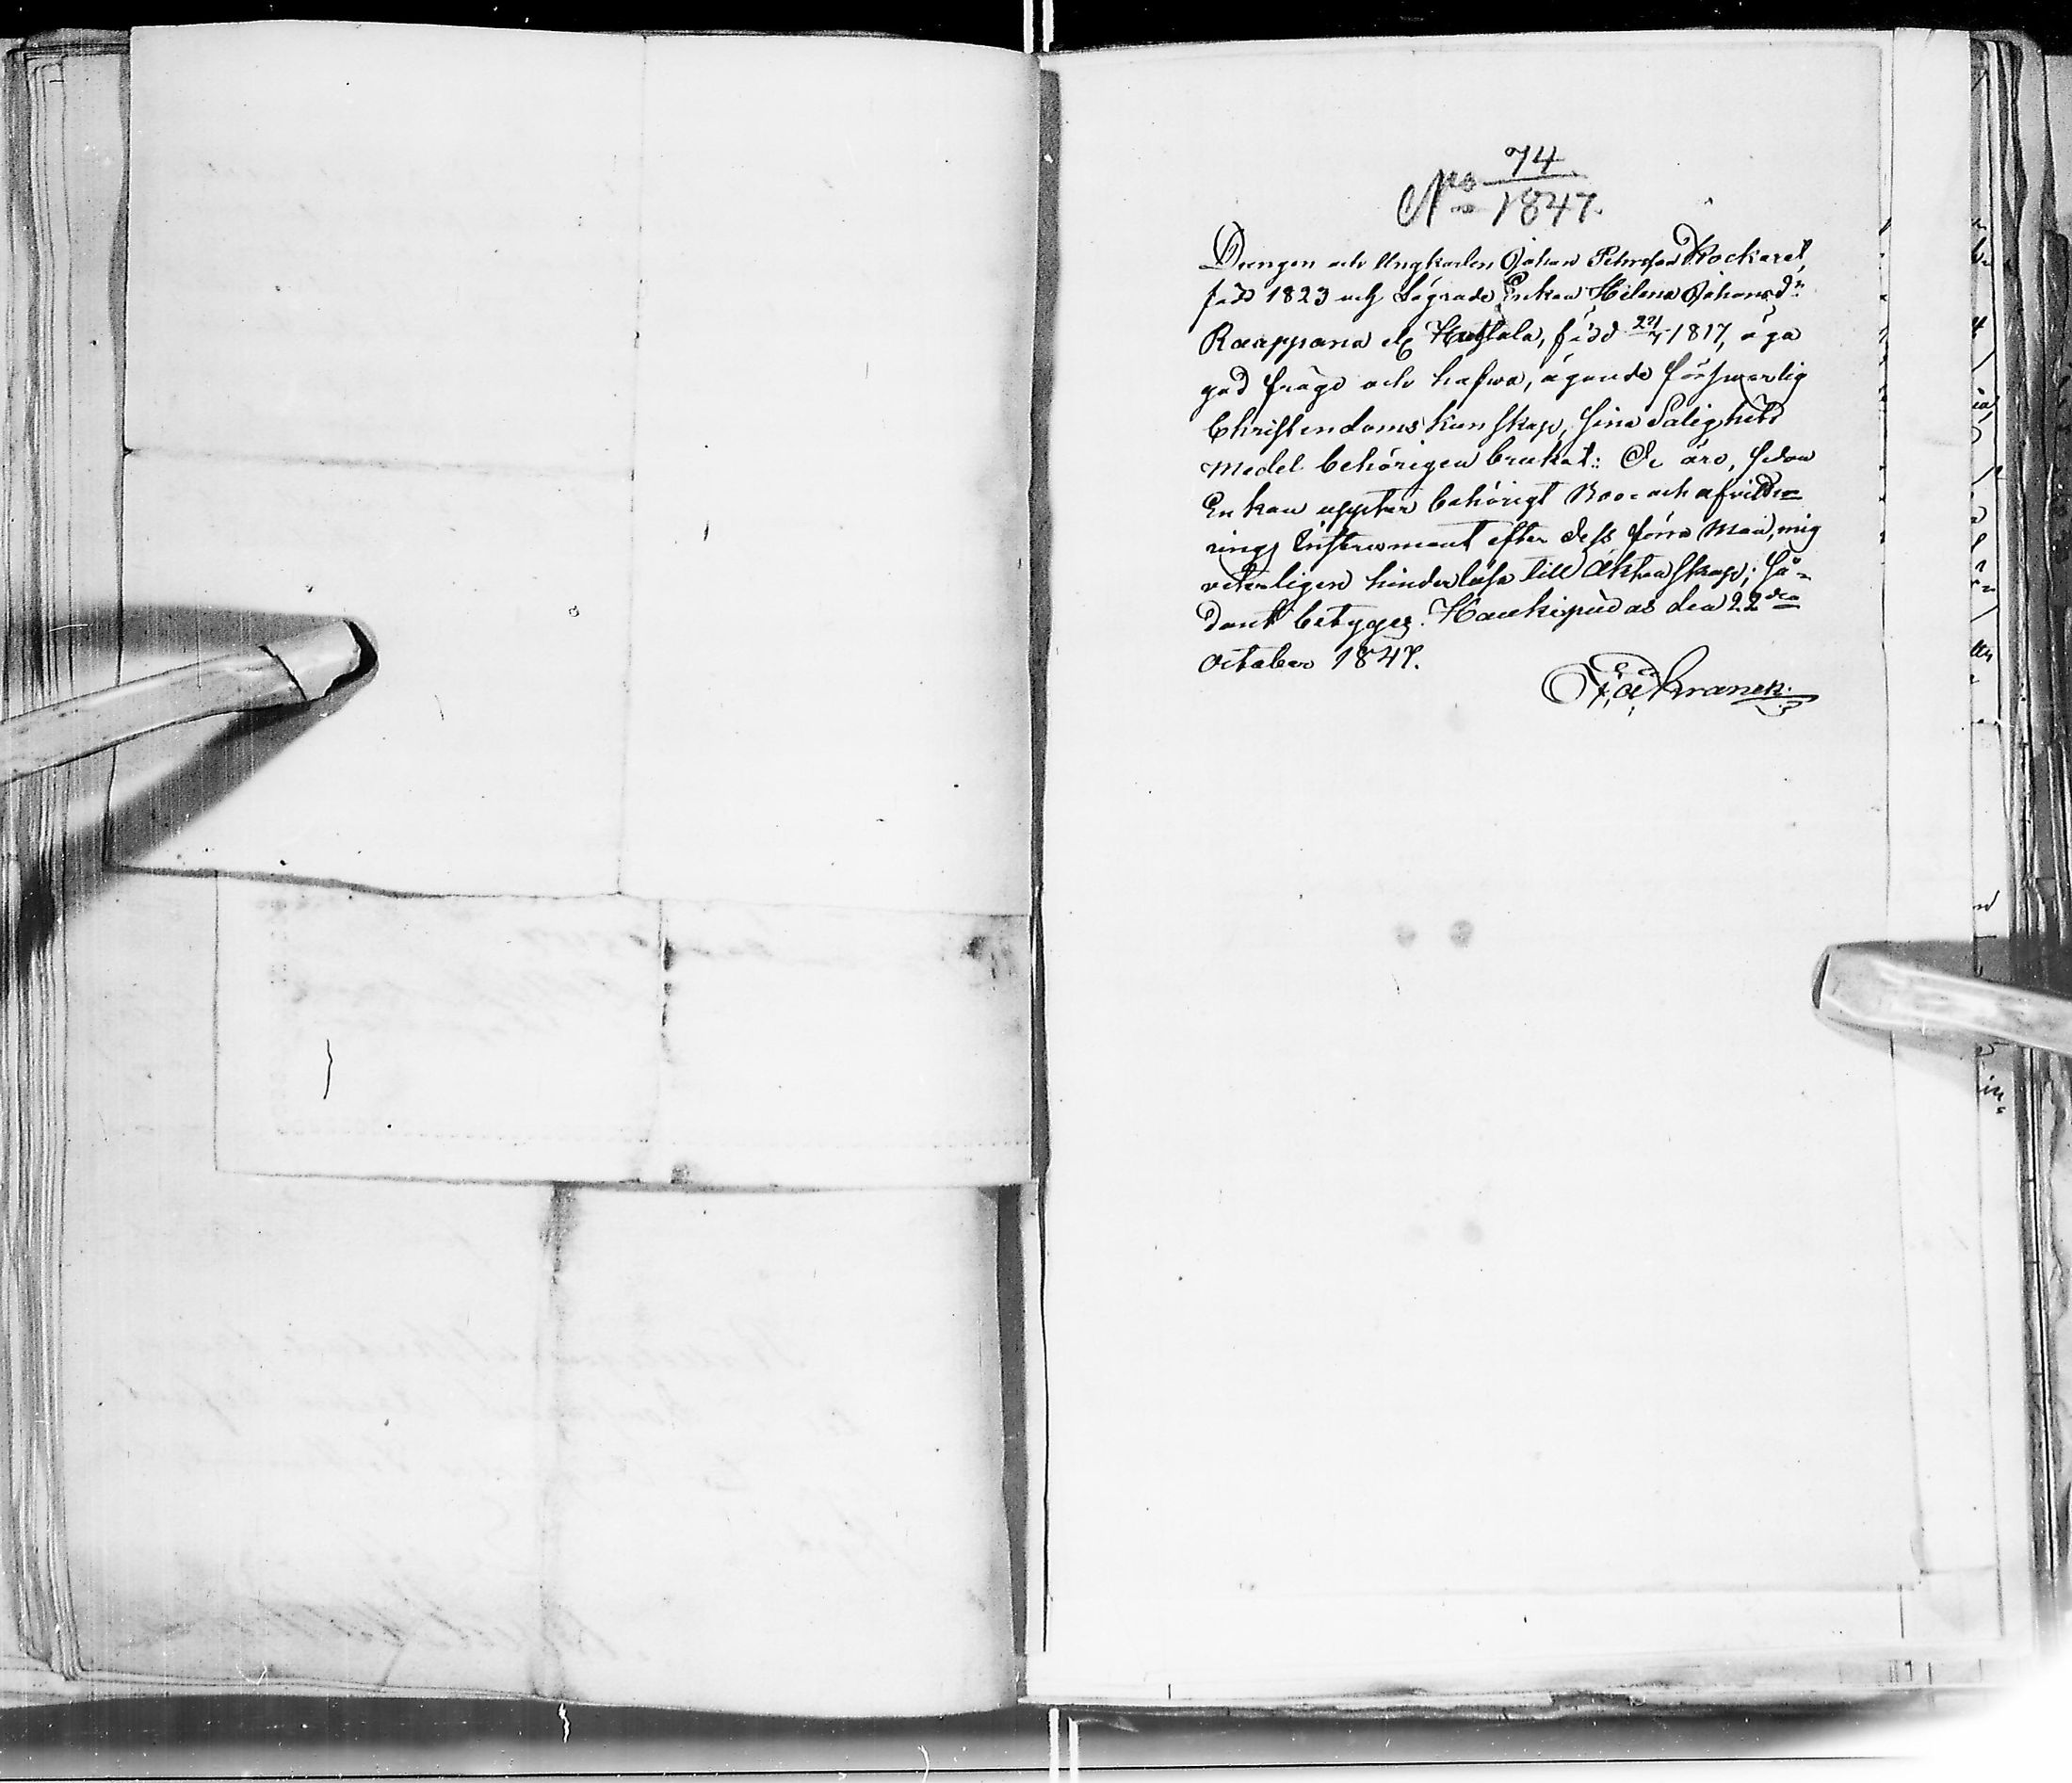 74
No 1847.
Drengen och Ungkarlen Johan Pehrsson Kockare,
född 1823 och Lägrade Enkan Helena Johansdr
Raappana el. Hattala, född 27/7 1817, äga
god frägd och hafwa, ägande försvarlig
Christendoms kunskap, sina Salighets
medel behörigen brukat: De äro, sedan
Enkan uppter behörigt Boo- och afvittre=
rings Instrument efter dess förra Man, mig
veterligen hinderlösa till Äktenskap; så=
dant betyges. Haukipudas den 22dra
October 1847.